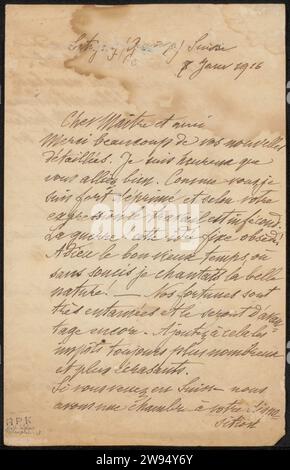 Suisse
8 Janv 1916
Cher Maître et ami
Merci beaucoup de vos nouvelles
détaillées. Je suis heureux que
vous alliez bien. Comme vous je
suis fort déprimé et selon votre
expression travail est infécond.
La guerre cette idée fixe obséd.
Adieu le bon vieux temps, ou
sans soucis je chantais la belle
nature! — Nos fortunes sont
très entamées et le seront davan-
tage encore. Ajoutez à cela les
impôts toujours plus nombreux
et plus écrasants.
Si vous venez en Suisse nous
avons une chambre à votre
alamy
Image ID: 2W94Y6Y
www.alamy.com